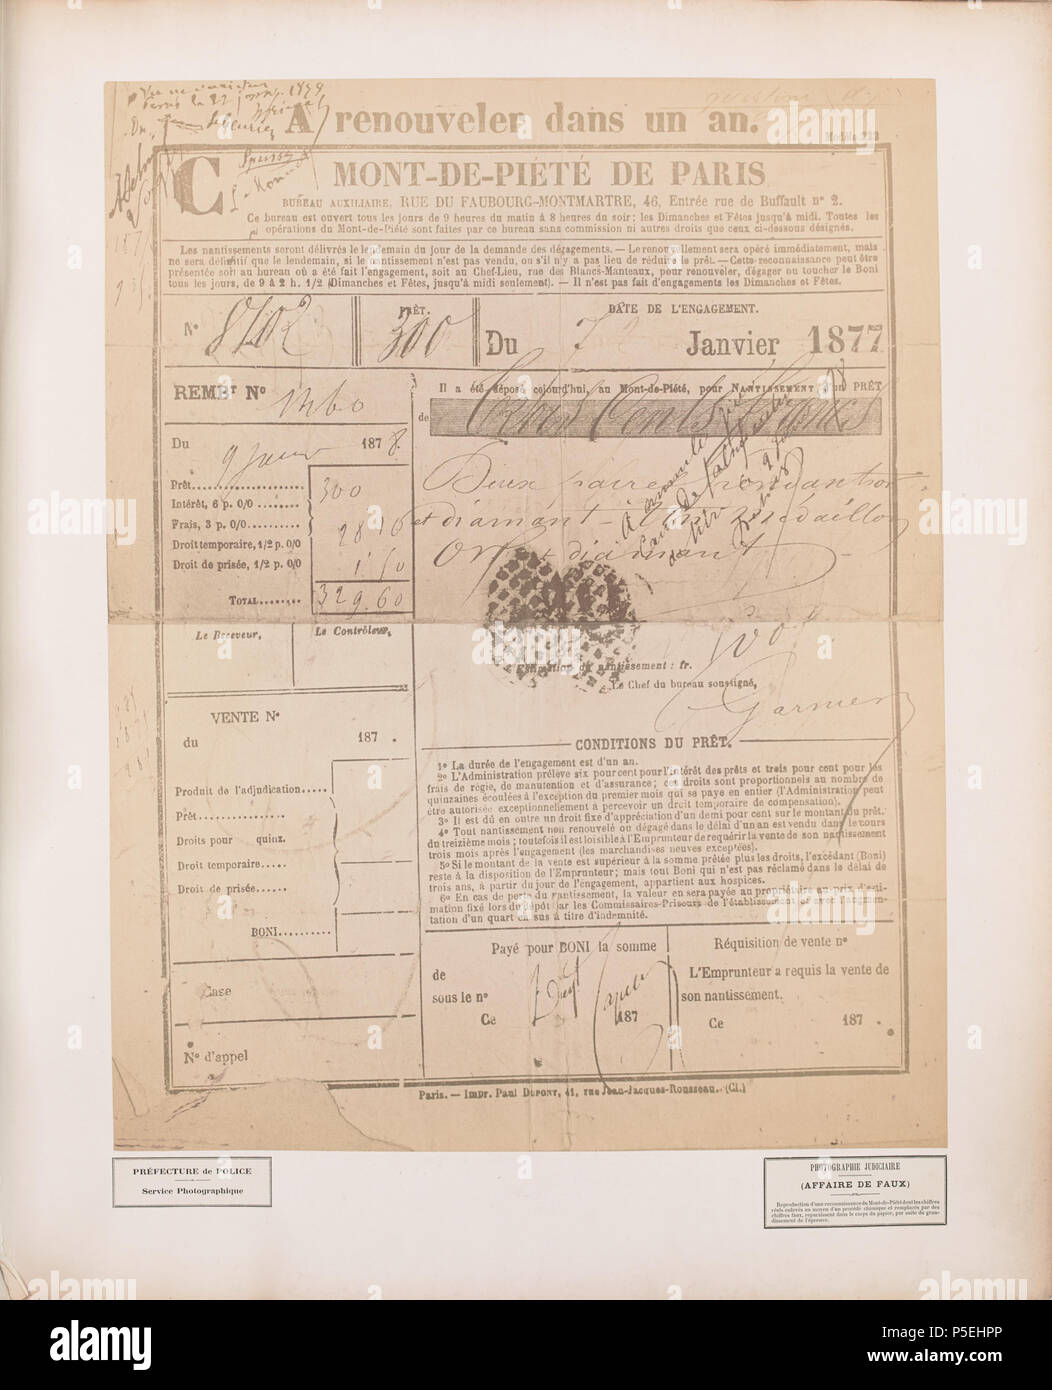 A renouveler dans un an.
Modèle 233
C
MONT-DE-PIÉTÉ DE PARIS
BUREAU AUXILIAIRE, RUE DU FAUBOURG-MONTMARTRE, 46, Entrée rue de Buffault nº 2.
Ce bureau est ouvert tous les jours de 9 heures du matin à 8 heures du soir; les Dimanches et Fêtes jusqu'à midi. Toutes les
opérations du Mont-de-Piété sont faites par ce bureau sans commission ni autres droits que ceux ci-dessous désignés.
Les nantissements seront délivrés le lendemain du jour de la demande des dégagements. — Le renouvellement sera opéré immédiatement, mais
ne sera définitif que le lendemain, si le nantissement n'est pas vendu, ou s'il n'y a pas lieu de réduire le prêt. — Cette reconnaissance peut être
présentée soit au bureau où a été fait l'engagement, soit au Chef-Lieu, rue des Blancs-Manteaux, pour renouveler, dégager ou toucher le Boni
tous les jours, de 9 à 2 h. 1/2 (Dimanches et Fêtes, jusqu'à midi seulement). — Il n'est pas fait d'engagements les Dimanches et Fêtes.
Nº
PRÊT.
300
DATE DE L'ENGAGEMENT.
Du 7 Janvier 1877
REMBT Nº
Il a été déposé cejourd'hui, au Mont-de-Piété, pour NANTISSEMENT d'un PRÊT
de
Du 9 187 8.
Prêt 300
Intérêt, 6 p. 0/0
Frais, 3 p. 0/0
Droit temporaire, 1/2 p. 0/0
Droit de prisée, 1/2 p. 0/0 1.50
TOTAL 329.60
Deux paires
et diamant
Or et diamant
Le Receveur,
Le Contrôleur,
Estimation du nantissement : fr.
Le Chef du bureau soussigné,
Garnier
VENTE Nº
du 187 .
Produit de l'adjudication.....
Prêt................
Droits pour quinz.
Droit temporaire.....
Droit de prisée......
BONI..........
Case
Nº d'appel
CONDITIONS DU PRÊT.
1º La durée de l'engagement est d'un an.
2º L'Administration prélève six pour cent pour l'intérêt des prêts et trois pour cent pour les
frais de régie, de manutention et d'assurance; ces droits sont proportionnels au nombre de
quinzaines écoulées à l'exception du premier mois qui se paye en entier (l'Administration peut
être autorisée exceptionnellement à percevoir un droit temporaire de compensation).
3º Il est dû en outre un droit fixe d'appréciation d'un demi pour cent sur le montant du prêt.
4º Tout nantissement non renouvelé ou dégagé dans le délai d'un an est vendu dans le cours
du treizième mois; toutefois il est loisible à l'Emprunteur de requérir la vente de son nantissement
trois mois après l'engagement (les marchandises neuves exceptées).
5º Si le montant de la vente est supérieur à la somme prêtée plus les droits, l'excédant (Boni)
reste à la disposition de l'Emprunteur; mais tout Boni qui n'est pas réclamé dans le délai de
trois ans, à partir du jour de l'engagement, appartient aux hospices.
6º En cas de perte du nantissement, la valeur en sera payée au propriétaire au prix d'esti-
mation fixé lors du dépôt par les Commissaires-Priseurs de l'établissement et avec l'augmen-
tation d'un quart en sus à titre d'indemnité.
Payé pour BONI la somme
de
sous le nº
Ce 187
Réquisition de vente nº
L'Emprunteur a requis la vente de
son nantissement.
Ce 187 .
Paris. — Impr. Paul DUPONT, 41, rue Jean-Jacques-Rousseau. (Cl.)
PRÉFECTURE de POLICE
Service Photographique
PHOTOGRAPHIE JUDICIAIRE
(AFFAIRE DE FAUX)
Reproduction d'une reconnaissance du Mont-de-Piété dont les chiffres
réels enlevés au moyen d'un procédé chimique et remplacés par des
chiffres faux, reparaissent dans le corps du papier, par suite du gran-
dissement de l'épreuve.
alamy
Image ID: P5EHPP
www.alamy.com